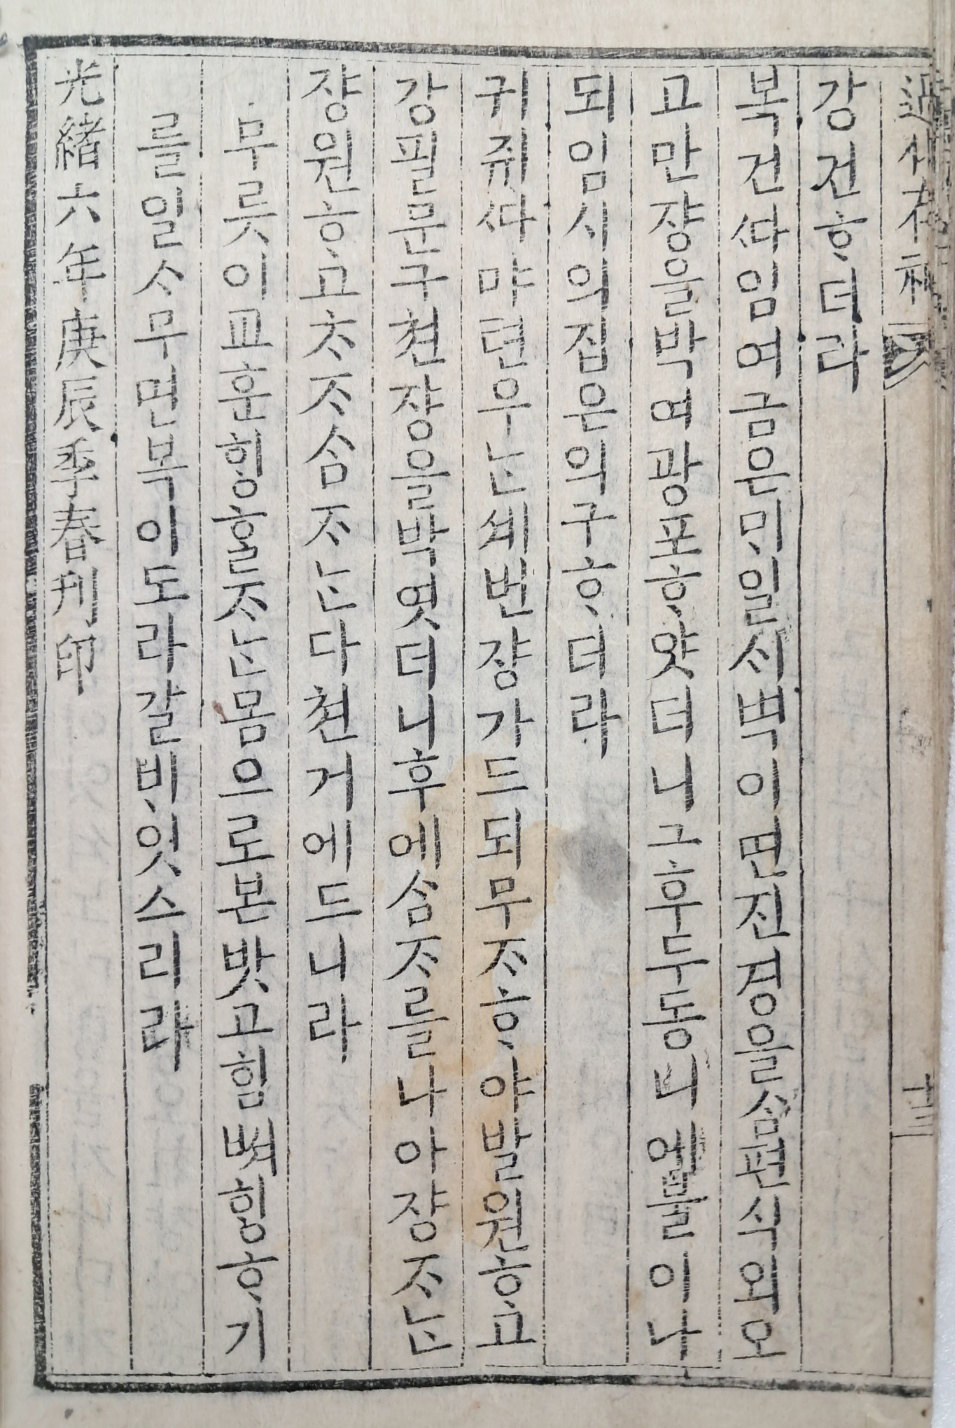 강건ᄒᆞ더라
복건ᄯᅡ임여금은ᄆᆡ일ᄉᆡ벽이면진경을삼편식외오
고만쟝을박여광포ᄒᆞ얏더니그후두동ᄂᆡ예불이나
되임시의집은의구ᄒᆞ더라
귀쥬ᄯᅡ마텬우ᄂᆞᆫ셰번쟝가드되무ᄌᆞᄒᆞ야발원ᄒᆞ고
강필문구쳔쟝을박엿더니후에삼ᄌᆞ를나아쟝ᄌᆞᄂᆞᆫ
쟝원ᄒᆞ고ᄎᆞᄌᆞ삼ᄌᆞᄂᆞᆫ다쳔거에드니라
무릇이교훈ᄒᆡᆼᄒᆞᆯᄌᆞᄂᆞᆫ몸으로본밧고힘ᄡᅥᄒᆡᆼᄒᆞ기
를일ᄉᆞ무면복이도라갈ᄇᆡ잇스리라
光緖六年庚辰季春刋印